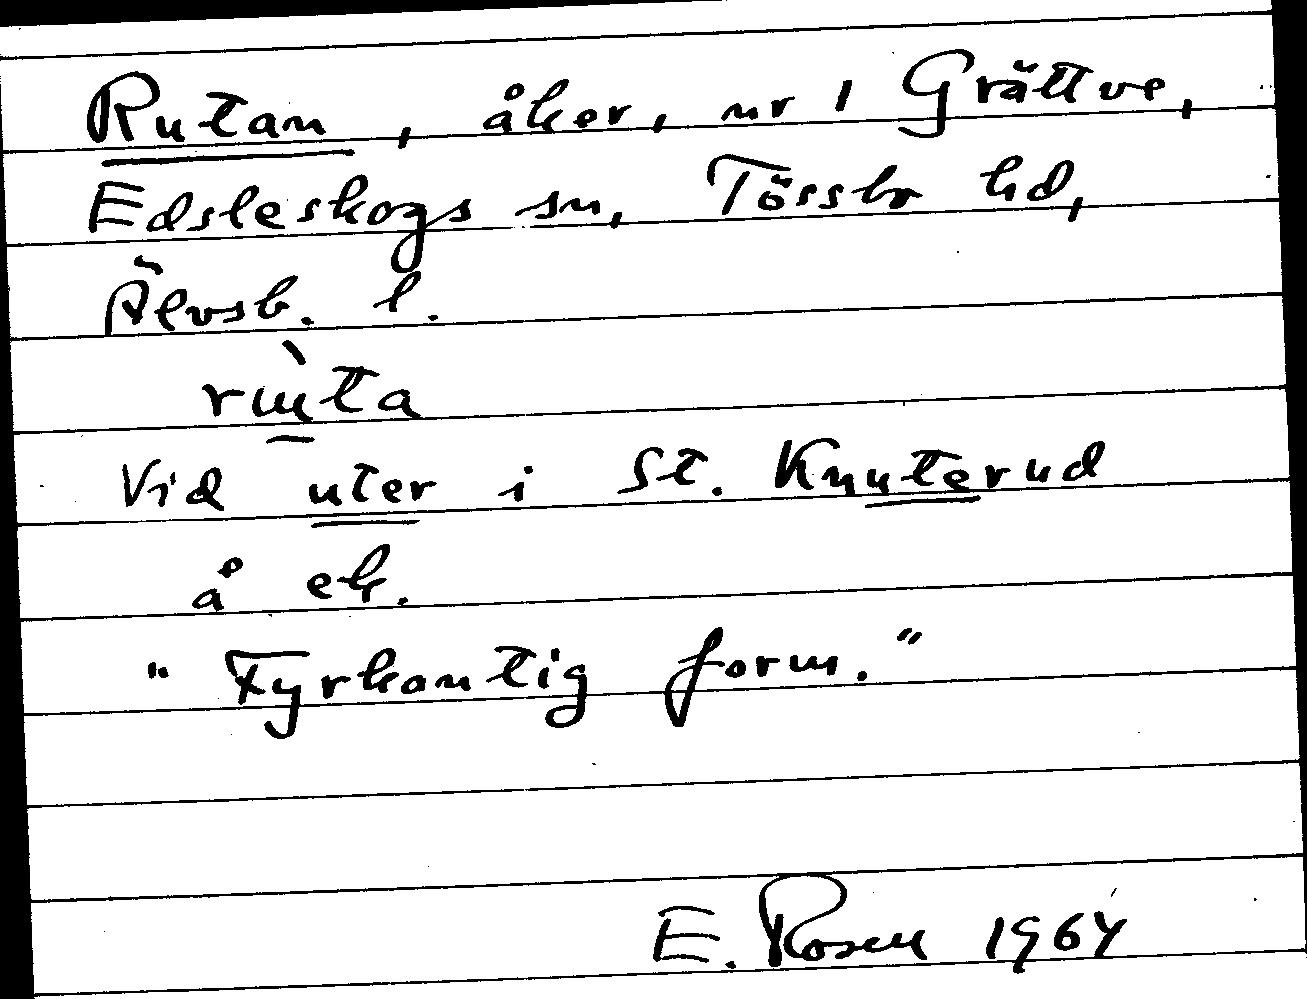 Rutan, åker, nr 1 Grättve,
Edsleskogs sn, Tössbo hd,
Älvsb. l.
rùta
Vid uter i St. Knuterud
å ek.
"Fyrkantig form."
E. Rosen 1964